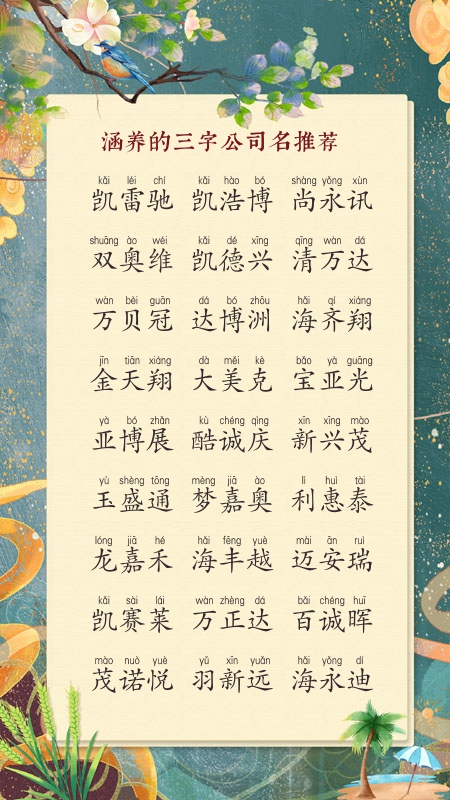 涵养的三字公司名推荐
kǎi léi chí kǎi hào bó shàng yǒng xùn
凯雷驰 凯浩博 尚永讯
shuāng ào wéi kǎi dé xīng qīng wàn dá
双奥维 凯德兴 清万达
wàn bèi guān dá bó zhōu hǎi qí xiáng
万贝冠 达博洲 海齐翔
jīn tiān xiáng dà měi kè bǎo yà guāng
金天翔 大美克 宝亚光
yà bó zhǎn kù chéng qìng xīn xīng mào
亚博展 酷诚庆 新兴茂
yù shèng tōng mèng jiā ào lì huì tài
玉盛通 梦嘉奥 利惠泰
lóng jiā hé hǎi fēng yuè mài ān ruì
龙嘉禾 海丰越 迈安瑞
kǎi sài lái wàn zhèng dá bǎi chéng huī
凯赛莱 万正达 百诚晖
mào nuò yuè yǔ xīn yuǎn hǎi yǒng dí
茂诺悦 羽新远 海永迪